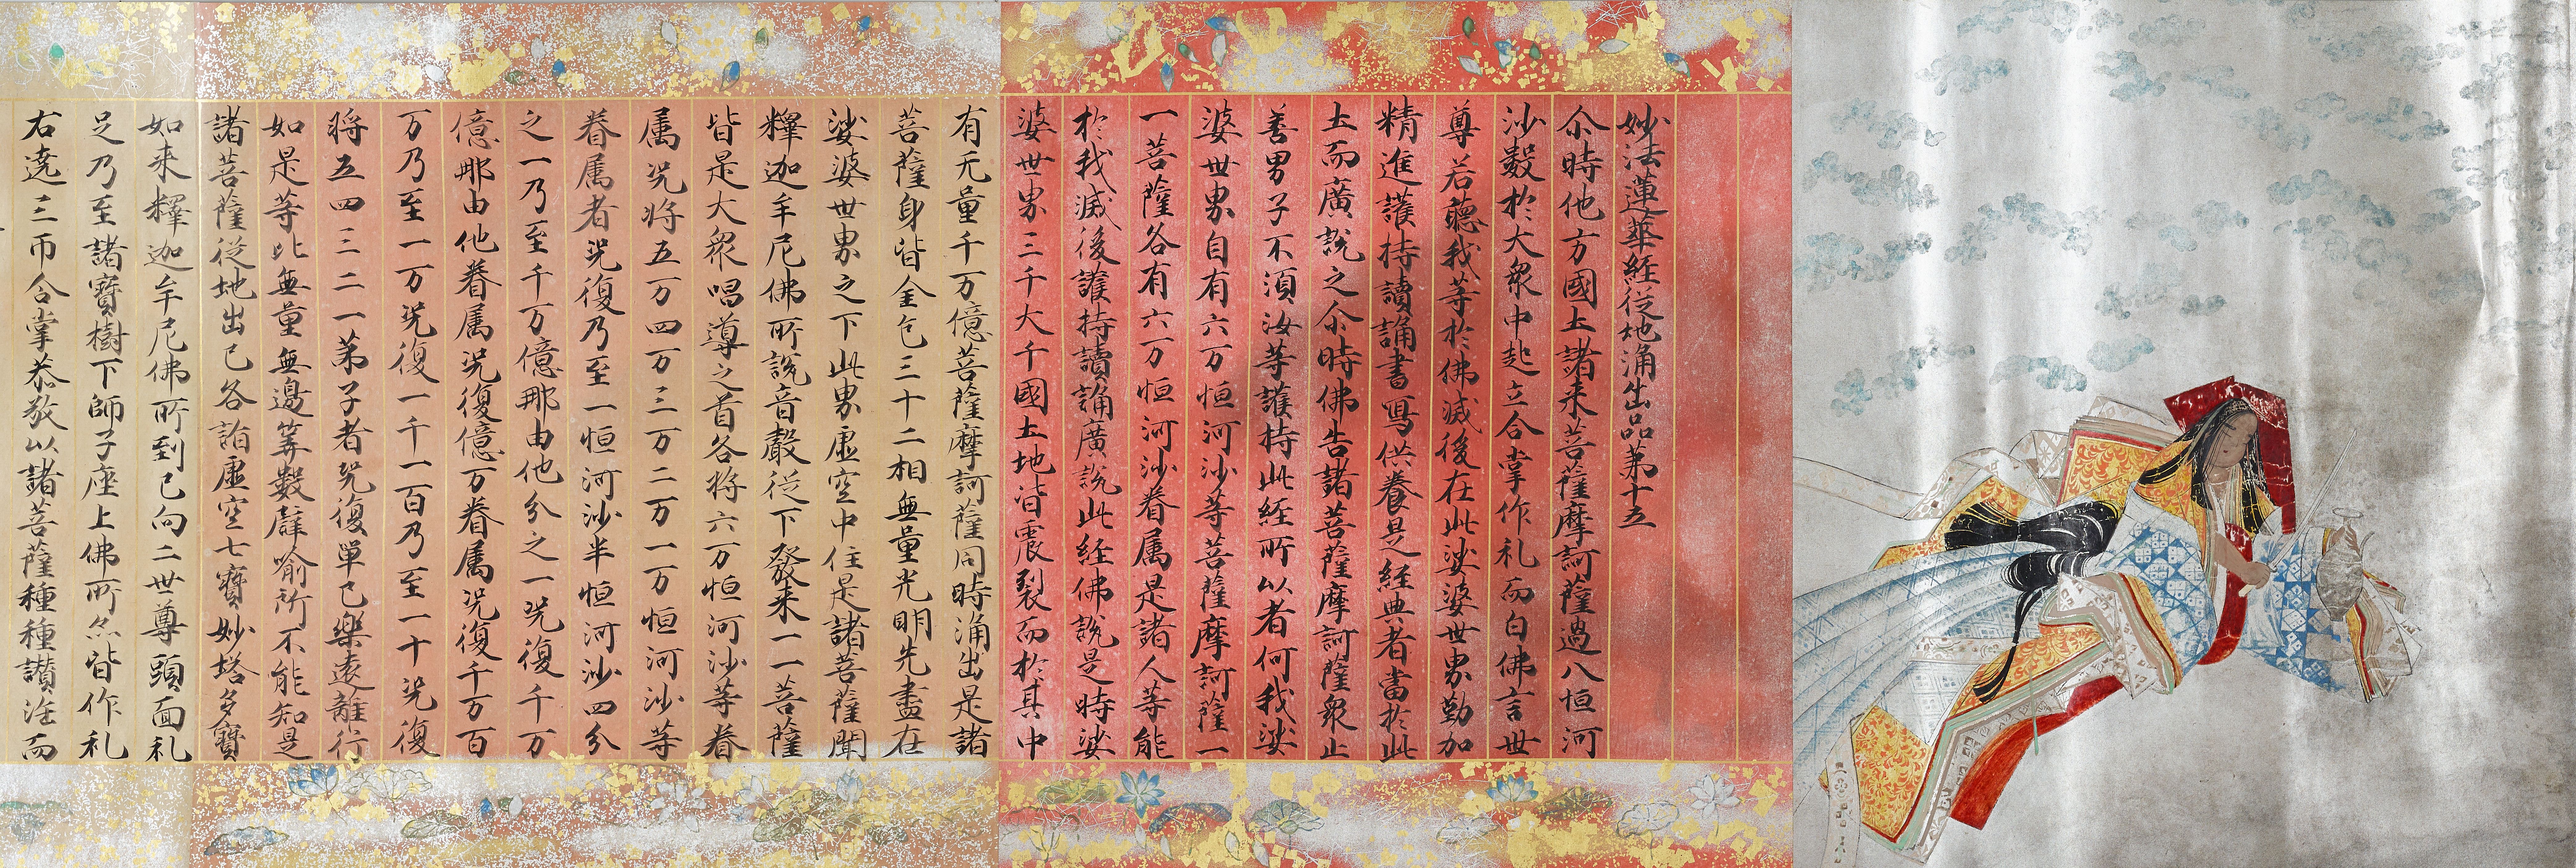 妙法蓮華経従地涌出品苐十五
尒時他方國土諸来菩薩摩訶薩過八恒河
沙數於大衆中起立合掌作礼而白佛言世
尊若聽我等於佛滅後在此娑婆世界勤加
精進護持讀誦書寫供養是経典者當於此
土而廣說之尒時佛告諸菩薩摩訶薩衆止
善男子不須汝等護持此経所以者何我娑
婆世界自有六万恒河沙等菩薩摩訶薩一
一菩薩各有六万恒河沙眷属是諸人等能
於我滅後護持讀誦廣說此経佛說是時娑
婆世界三千大千國土地皆震裂而於其中
有无量千万億菩薩摩訶薩同時涌出是諸
菩薩身皆金色三十二相無量光明先盡在
娑婆世界之下此界虚空中住是諸菩薩聞
釋迦牟尼佛所說音聲従下發来一一菩薩
皆是大衆唱導之首各将六万恒河沙等眷
属况将五万四万三万二万一万恒河沙等
眷属者况復乃至一恒河沙半恒河沙四分
之一乃至千万億那由他分之一况復千万
億那由他眷属况復億万眷属况復千万百
万乃至一万况復一千一百乃至一十况復
将五四三二一苐子者况復單己樂遠離行
如是等比無量無邊筭數譬喻所不能知是
諸菩薩従地出已各詣虚空七寶妙塔多寶
如来釋迦牟尼佛所到已向二世尊頭面礼
足乃至諸寶樹下師子座上佛所亦皆作礼
右遶三帀合掌恭敬以諸菩薩種種讃法而